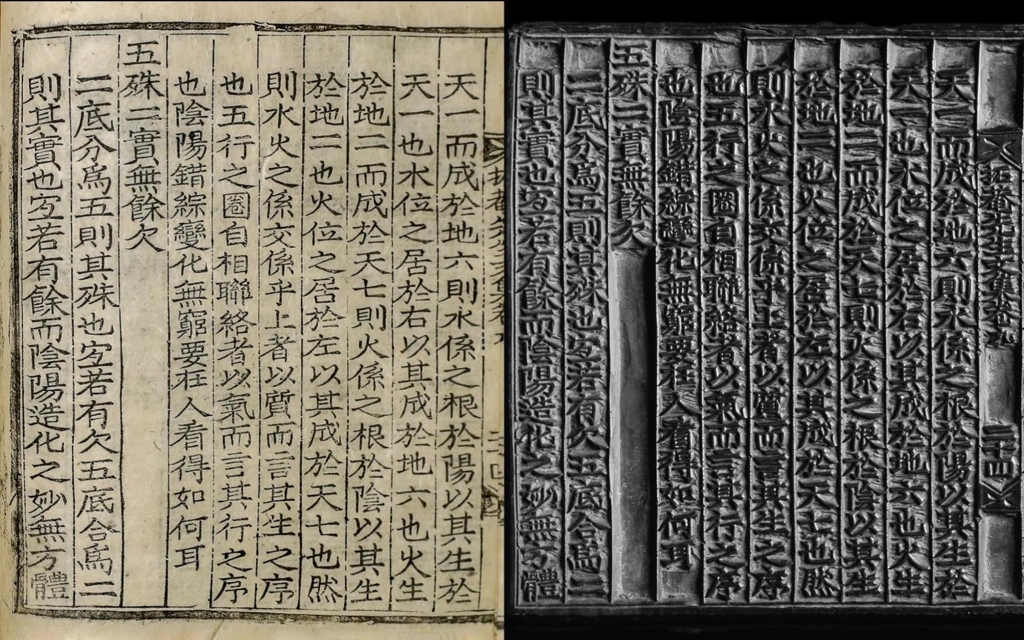 天一而成於地六則水係之根於陽以其生於
天一也水位之居於右以其成於地六也火生
於地二而成於天七則火係之根於陰以其生
於地二也火位之居於左以其成於天七也然
則水火之係交係乎上者以質而言其生之序
也五行之圈自相聯絡者以氣而言其行之序
也陰陽錯綜變化無窮要在人看得如何耳
五殊二實無餘欠
二底分爲五則其殊也宜若有欠五底合爲二
則其實也宜若有餘而陰陽造化之妙無方體
拓菴先生文集卷
二十四
天一而成於地六則水係之根於陽以其生於
天一也水位之居於右以其成於地六也火生
於地二而成於天七則火係之根於陰以其生
於地二也火位之居於左以其成於天七也然
則水火之係交係乎上者以質而言其生之序
也五行之圈自相聯絡者以氣而言其行之序
也陰陽錯綜變化無窮要在人看得如何耳
五殊二實無餘欠
二底分爲五則其殊也宜若有欠五底合爲二
則其實也宜若有餘而陰陽造化之妙無方體